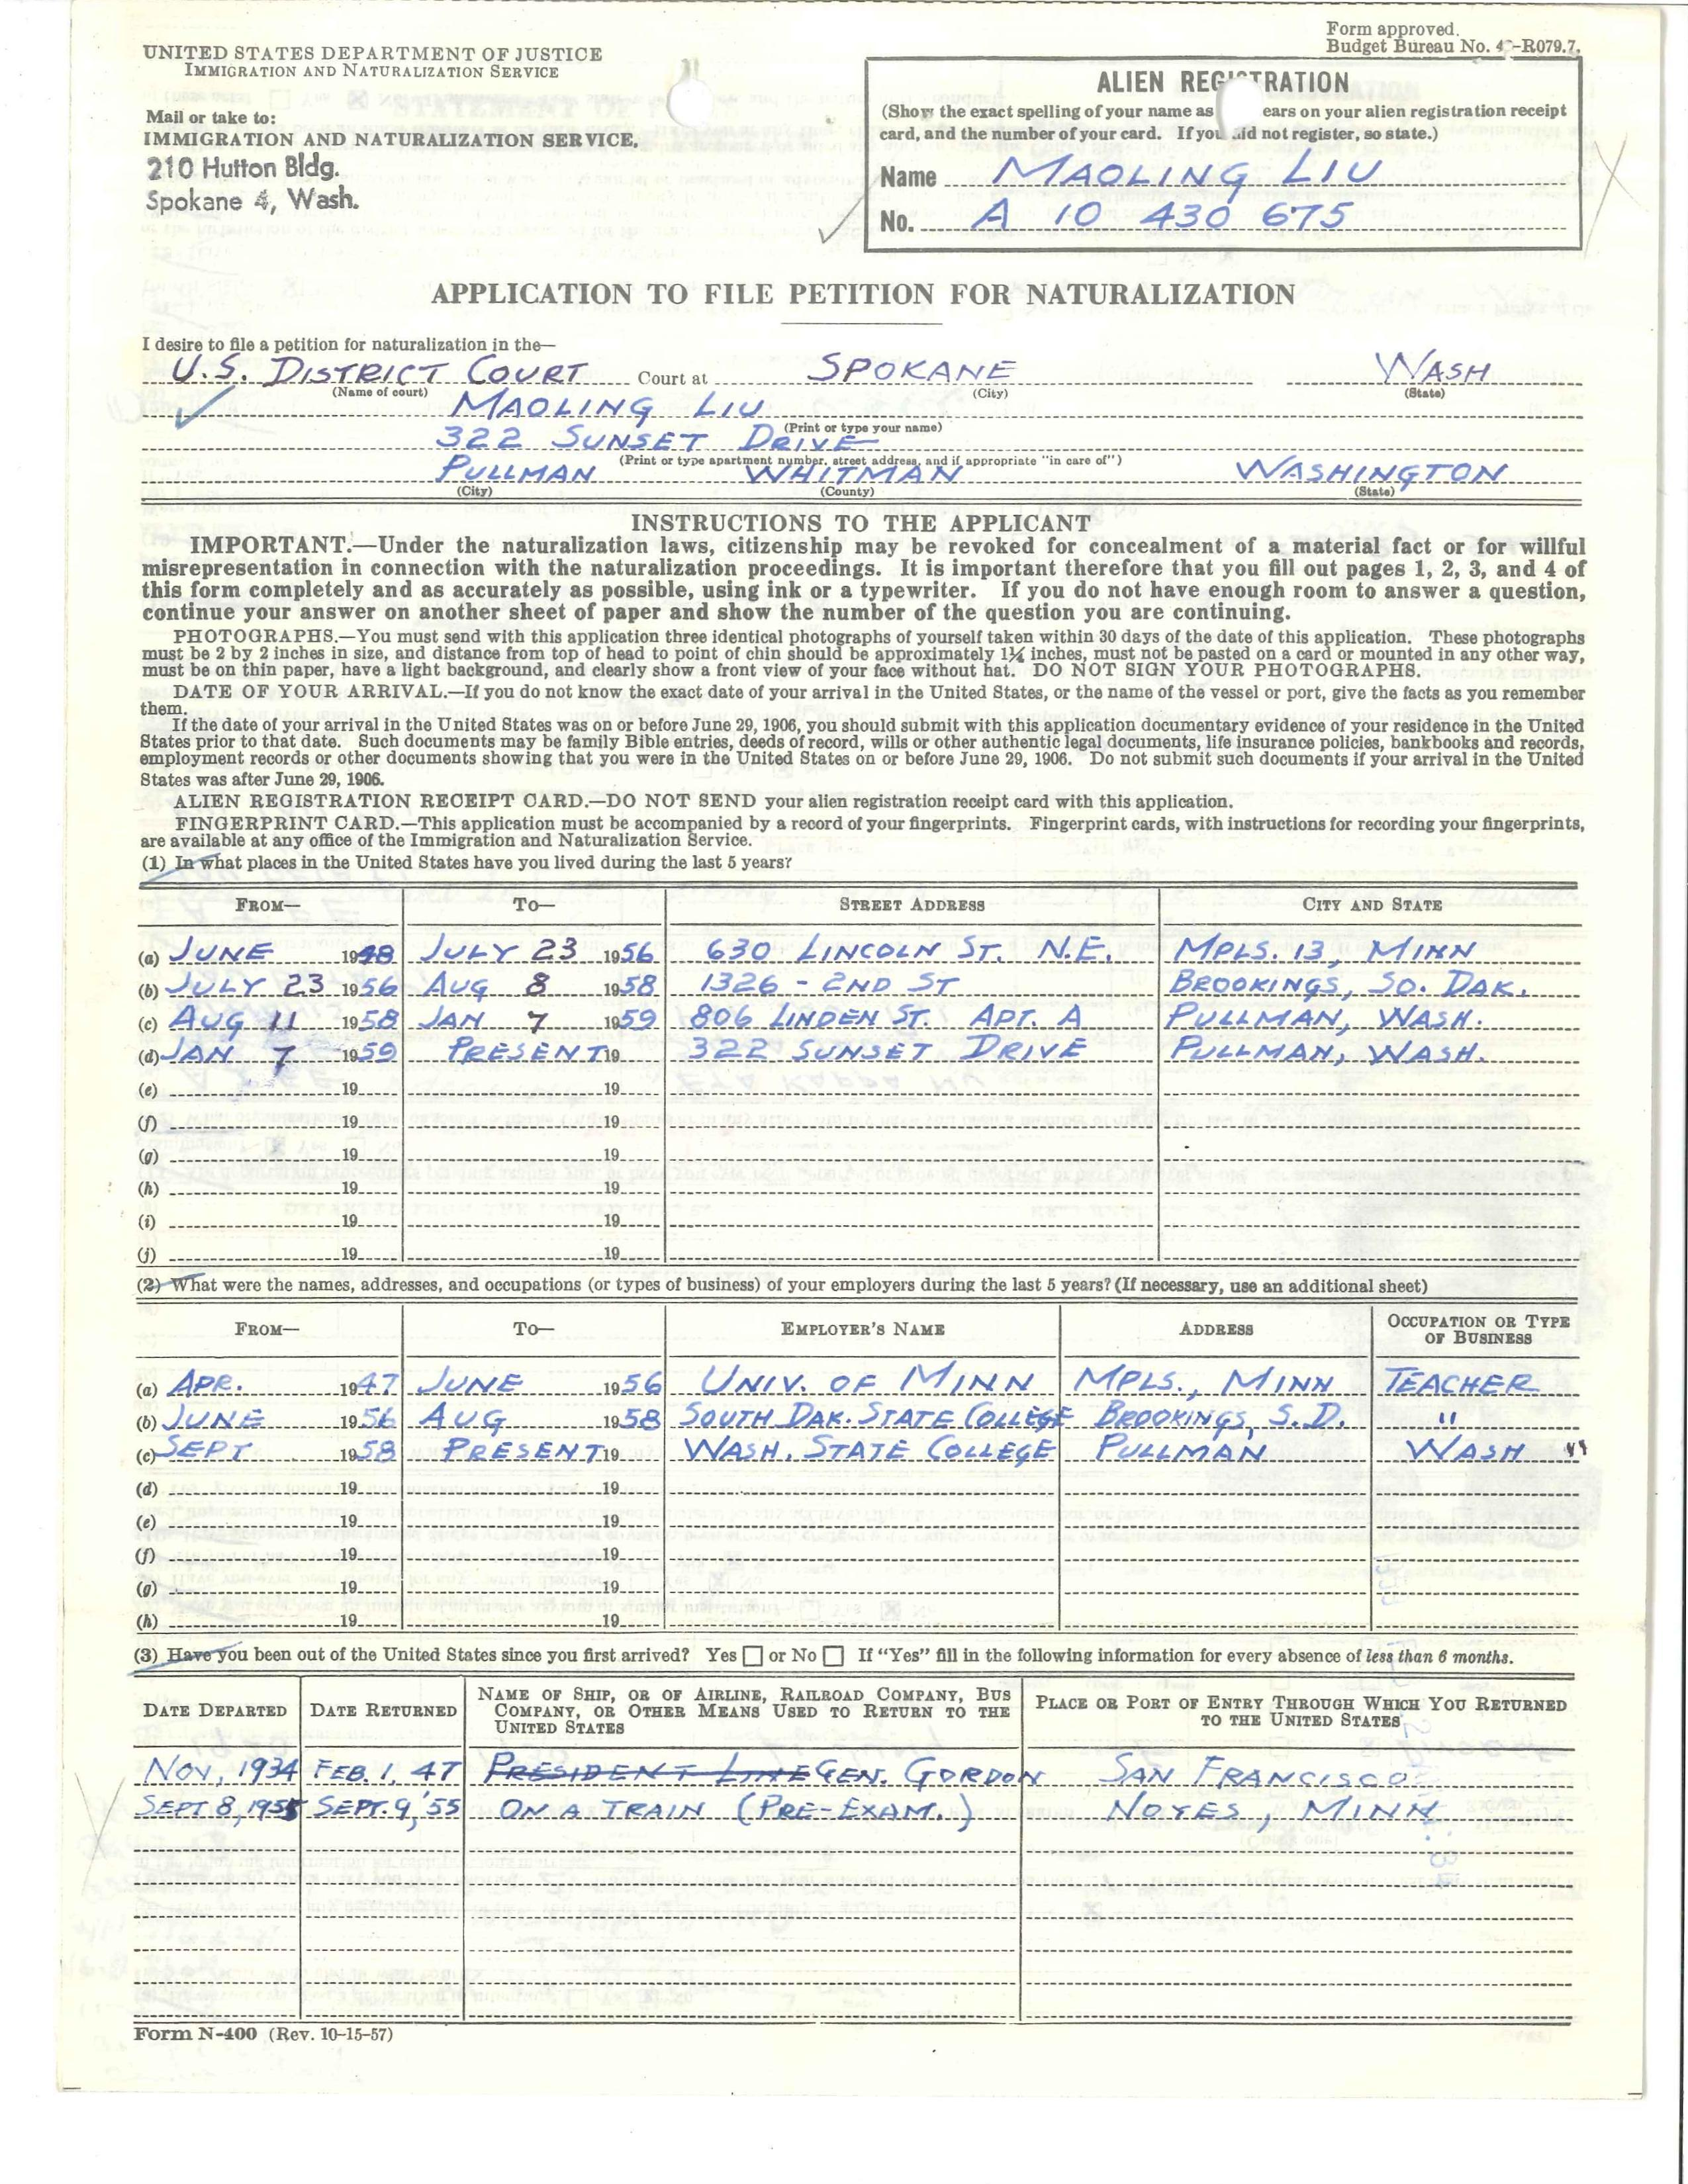 Form approved.
Budget Bureau No. 4 -R079.7.
UNITED STATES DEPARTMENT OF JUSTICE
IMMIGRATION AND NATURALIZATION SERVICE
Mail or take to:
IMMIGRATION AND NATURALIZATION SERVICE,
210 Hutton Bldg.
Spokane 4, Wash.
ALIEN REGISTRATION
(Show the exact spelling of your name as ears on your alien registration receipt
card, and the number of your card. If you did not register, so state.)
Name MAOLING LIU
No. A 10 430 675
APPLICATION TO FILE PETITION FOR NATURALIZATION
I desire to file a petition for naturalization in the—
U.S. DISTRICT COURT Court at SPOKANE WASH
(Name of court) (City) (State)
MAOLING LIU
(Print or type your name)
322 SUNSET DRIVE
(Print or type apartment number, street address, and if appropriate "in care of")
PULLMAN WHITMAN WASHINGTON
(City) (County) (State)
INSTRUCTIONS TO THE APPLICANT
IMPORTANT.—Under the naturalization laws, citizenship may be revoked for concealment of a material fact or for willful
misrepresentation in connection with the naturalization proceedings. It is important therefore that you fill out pages 1, 2, 3, and 4 of
this form completely and as accurately as possible, using ink or a typewriter. If you do not have enough room to answer a question,
continue your answer on another sheet of paper and show the number of the question you are continuing.
PHOTOGRAPHS.—You must send with this application three identical photographs of yourself taken within 30 days of the date of this application. These photographs
must be 2 by 2 inches in size, and distance from top of head to point of chin should be approximately 1¼ inches, must not be pasted on a card or mounted in any other way,
must be on thin paper, have a light background, and clearly show a front view of your face without hat. DO NOT SIGN YOUR PHOTOGRAPHS.
DATE OF YOUR ARRIVAL.—If you do not know the exact date of your arrival in the United States, or the name of the vessel or port, give the facts as you remember
them.
If the date of your arrival in the United States was on or before June 29, 1906, you should submit with this application documentary evidence of your residence in the United
States prior to that date. Such documents may be family Bible entries, deeds of record, wills or other authentic legal documents, life insurance policies, bankbooks and records,
employment records or other documents showing that you were in the United States on or before June 29, 1906. Do not submit such documents if your arrival in the United
States was after June 29, 1906.
ALIEN REGISTRATION RECEIPT CARD.—DO NOT SEND your alien registration receipt card with this application.
FINGERPRINT CARD.—This application must be accompanied by a record of your fingerprints. Fingerprint cards, with instructions for recording your fingerprints,
are available at any office of the Immigration and Naturalization Service.
(1) In what places in the United States have you lived during the last 5 years?
FROM— TO— STREET ADDRESS CITY AND STATE
(a) JUNE 1948 JULY 23 1956 630 LINCOLN ST. N.E. MPLS. 13, MINN
(b) JULY 23 1956 AUG 8 1958 1326 - 2ND ST BROOKINGS, SO. DAK.
(c) AUG 11 1958 JAN 7 1959 806 LINDEN ST. APT. A PULLMAN, WASH.
(d) JAN 7 1959 PRESENT 19 322 SUNSET DRIVE PULLMAN, WASH.
(e) 19 19
(f) 19 19
(g) 19 19
(h) 19 19
(i) 19 19
(j) 19 19
(2) What were the names, addresses, and occupations (or types of business) of your employers during the last 5 years? (If necessary, use an additional sheet)
FROM— TO— EMPLOYER'S NAME ADDRESS OCCUPATION OR TYPE
OF BUSINESS
(a) APR. 1947 JUNE 1956 UNIV. OF MINN MPLS., MINN TEACHER
(b) JUNE 1956 AUG 1958 SOUTH DAK. STATE COLLEGE BROOKINGS, S.D. "
(c) SEPT 1958 PRESENT 19 WASH. STATE COLLEGE PULLMAN WASH "
(d) 19 19
(e) 19 19
(f) 19 19
(g) 19 19
(h) 19 19
(3) Have you been out of the United States since you first arrived? Yes or No If "Yes" fill in the following information for every absence of less than 6 months.
DATE DEPARTED DATE RETURNED NAME OF SHIP, OR OF AIRLINE, RAILROAD COMPANY, BUS
COMPANY, OR OTHER MEANS USED TO RETURN TO THE
UNITED STATES PLACE OR PORT OF ENTRY THROUGH WHICH YOU RETURNED
TO THE UNITED STATES
NOV, 1934 FEB. 1, 47 PRESIDENT LINE GEN. GORDON SAN FRANCISCO
SEPT 8, 1955 SEPT. 9, '55 ON A TRAIN (PRE-EXAM.) NOYES, MINN.
Form N-400 (Rev. 10-15-57)